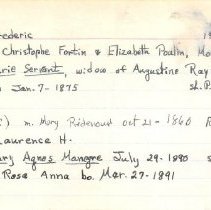 rederic
Christophe Fortin & Elizabeth Poulin, Mo
rie Servent, widow of Augustine Ray
Jan. 7 - 1875 st. P
) m. Mary Rideout oct 21 - 1860 R
Laurence H.
ary Agnes Mangne July 29 - 1890 s
Rosa Anna bo. Mar. 27 - 1891